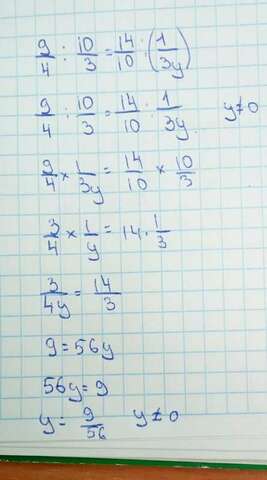 9/4 : 10/3 = 14/10 : (1/3y)
9/4 : 10/3 = 14/10 : 1/3y y≠0
9/4 × 1/3y = 14/10 × 10/3
3/4 × 1/y = 14 · 1/3
3/4y = 14/3
9 = 56y
56y = 9
y = 9/56 y≠0